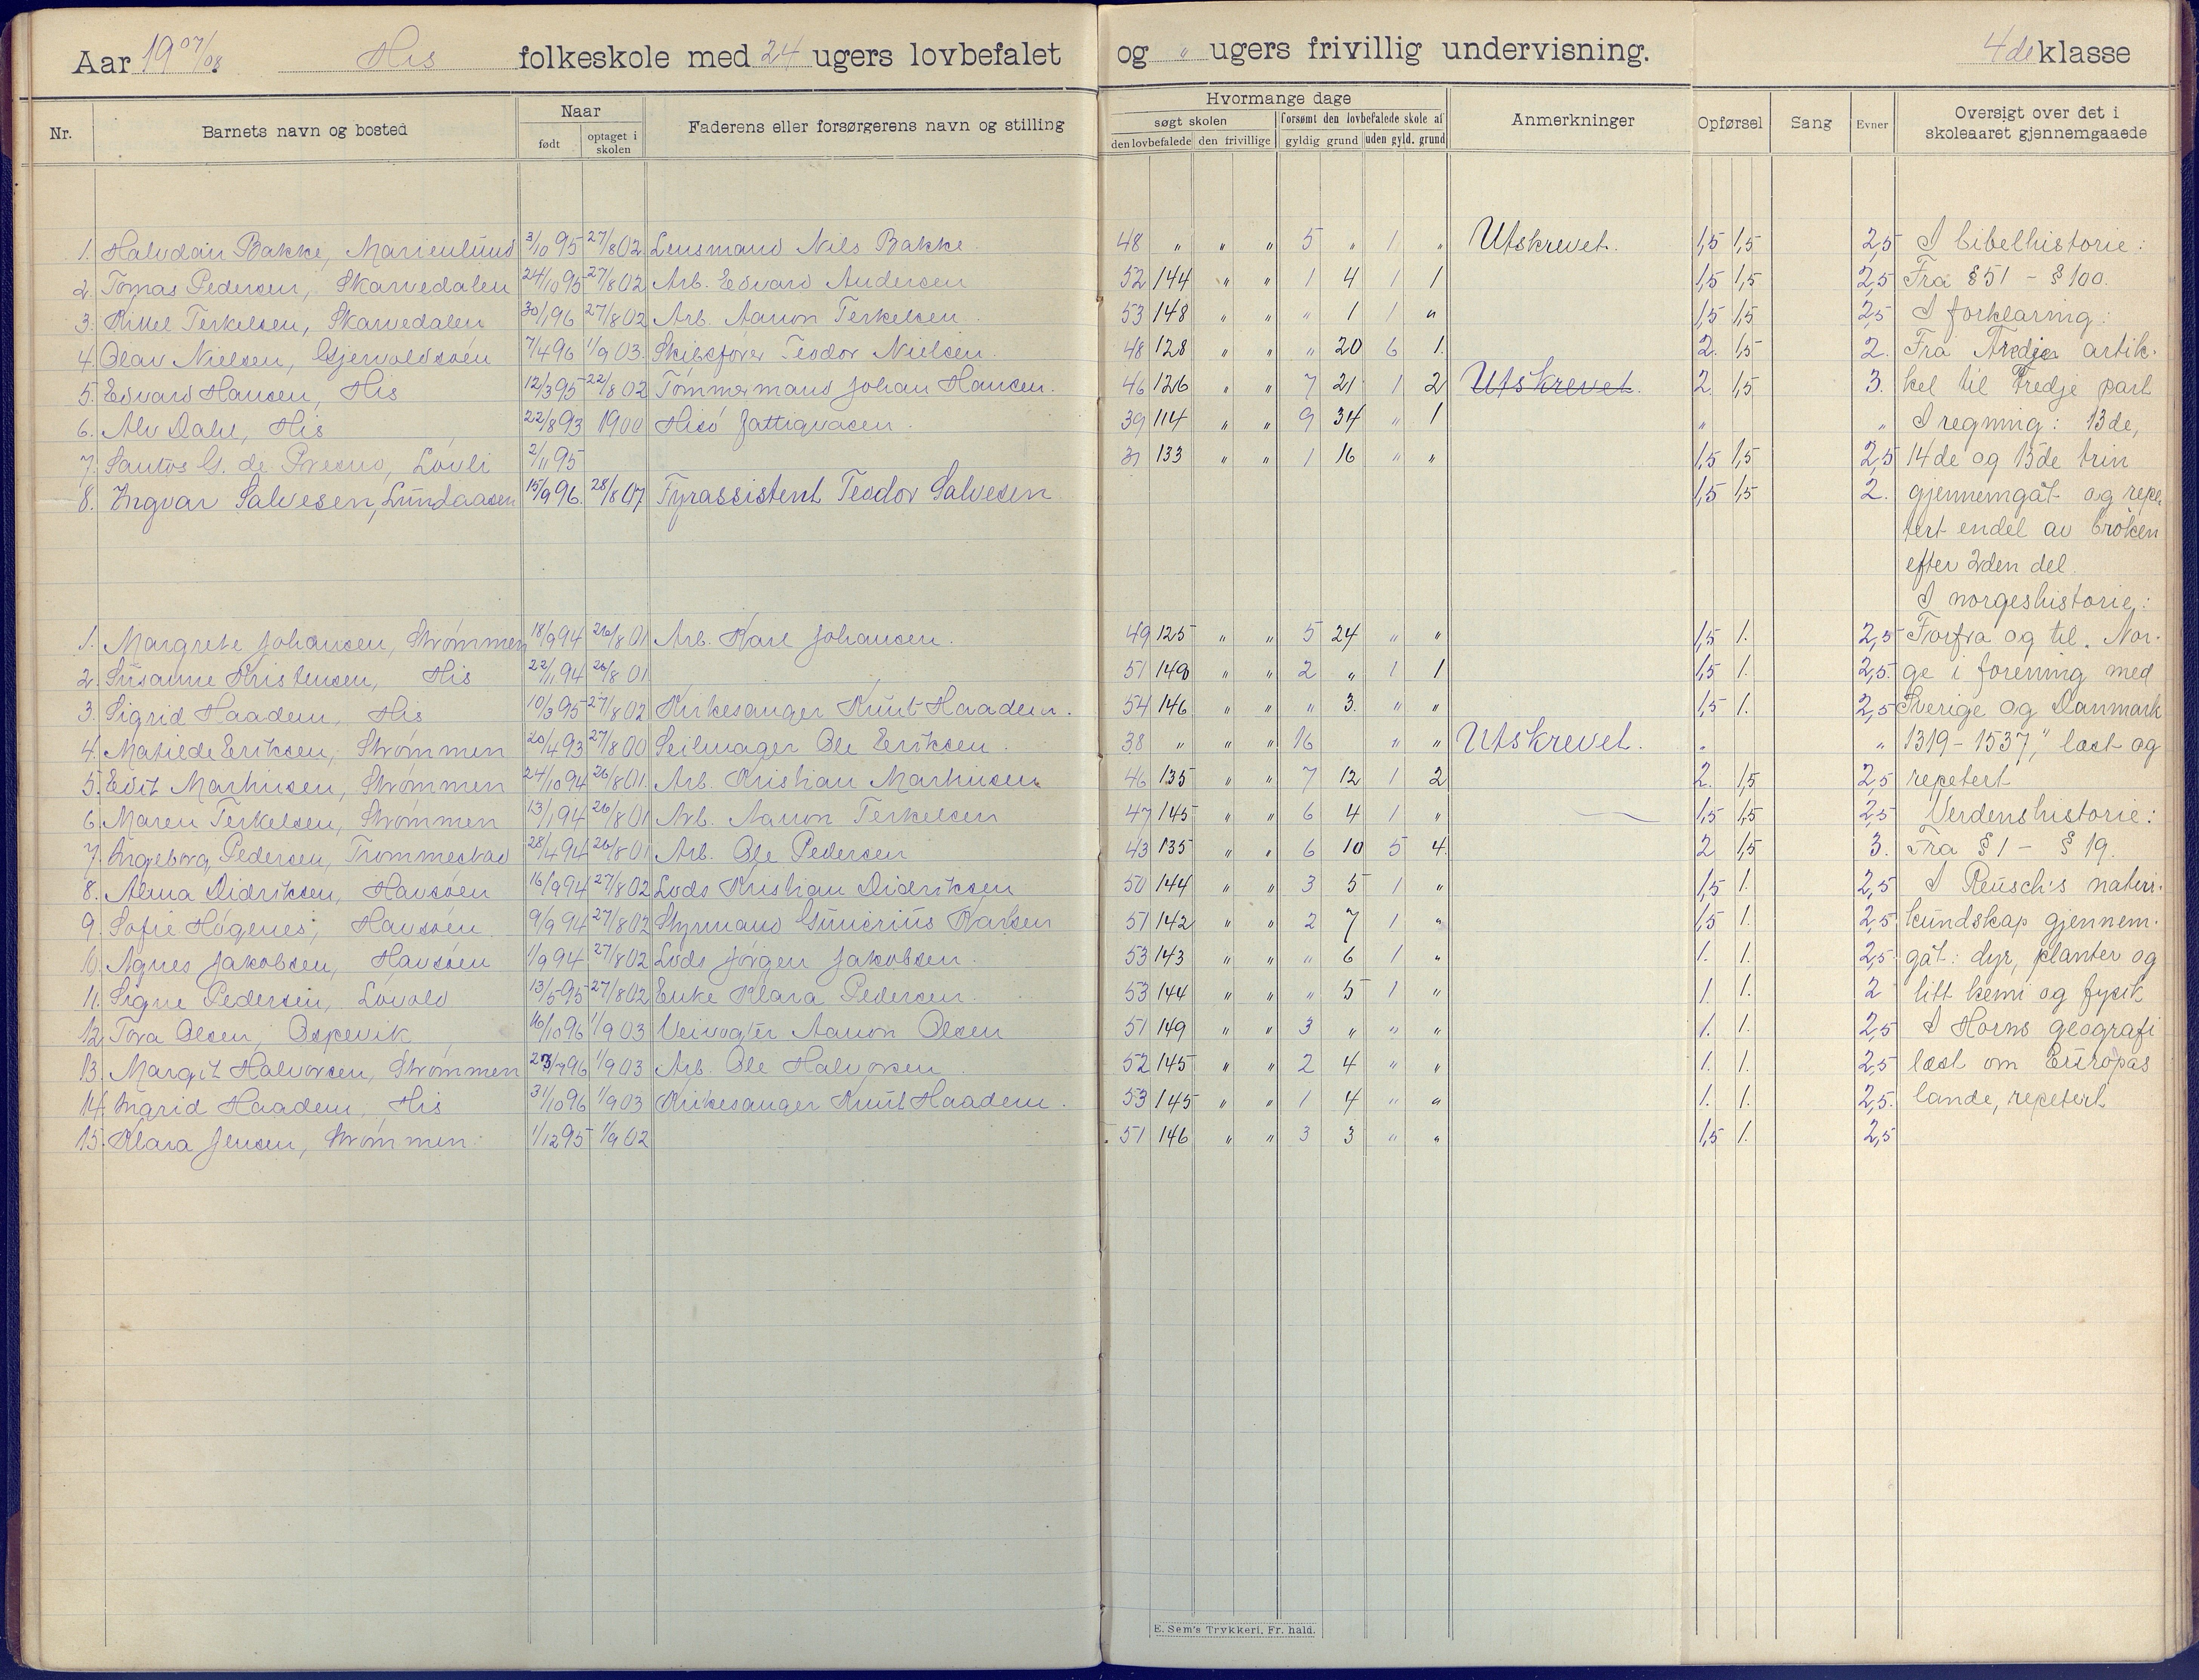 Aar 19 07/08 His folkeskole med 24 ugers lovbefalet og " ugers frivillig undervisning. 4de klasse
Nr. Barnets navn og bosted Naar født optaget i skolen Faderens eller forsørgerens navn og stilling
Hvormange dage søgt skolen den lovbefalede den frivillige forsømt den lovbefalede skole af gyldig grund uden gyld. grund Anmerkninger Opførsel Sang Evner Oversigt over det i skoleaaret gjennemgaaede
1. Halvdan Bakke, Marienlund 3/10 95 27/8 02 Lensmand Nils Bakke. 48 " " " 5 " 1 " Utskrevet. 1,5 1,5 2,5 I bibelhistorie:
2. Tomas Pedersen, Skarvedalen 24/10 95 27/8 02 Arb. Edvard Andersen 52 144 " " 1 4 1 1 1,5 1,5 2,5 Fra § 51 - § 100.
3. Kittel Terkelsen, Skarvedalen 30/1 96 27/8 02 Arb. Aanon Terkelsen. 53 148 " " " 1 1 " 1,5 1,5 2,5 I forklaring:
4. Olav Nielsen, Gjervoldsøen 7/4 96 1/9 03. Skibsfører Teodor Nielsen. 48 128 " " " 20 6 1. 2. 1,5 2. Fra Tredje artik-
5. Edvard Hansen, His 12/3 95 22/8 02 Tømmermand Johan Hansen. 46 126 " " 7 21 1 2 Utskrevet. 2. 1,5 3. kel til tredje part
6. Alv Dahl, His 22/8 93 1900 Hisø fattigvæsen. 39 114 " " 9 34 " 1 " " I regning: 13de,
7. Santos G. de Presno, Lovli 2/11 95 31 133 " " 1 16 " " 1,5 1,5 2,5 14de og 15de trin
8. Ingvar Salvesen, Lundaasen 15/9 96. 28/8 07 Fyrassistent Teodor Salvesen 1,5 1,5 2. gjennemgåt og repe-
tert endel av brøken
efter 2den del.
I norgeshistorie:
1. Margrete Johansen, Strømmen 18/9 94 26/8 01 Arb. Karl Johansen. 49 125 " " 5 24 " " 1,5 1. 2,5 Forfra og til "Nor-
2. Susanne Kristensen, His 22/1 94 26/8 01 51 149 " " 2 " 1 1 1,5 1. 2,5. ge i forening med
3. Sigrid Haadem, His 10/3 95 27/8 02 Kirkesanger Knut Haadem. 54 146 " " " 3. " " 1,5 1. 2,5 Sverige og Danmark
4. Matilde Eriksen, Strømmen 20/4 93 27/8 00 Seilmager Ole Eriksen. 38 " " " 16 " " Utskrevet. " " 1319-1537," læst og
5. Edit Martinsen, Strømmen 24/10 94 26/8 01. Arb. Kristian Martinsen. 46 135 " " 7 12 1 2 2. 1,5 2,5 repetert
6. Maren Terkelsen, Strømmen 13/1 94 26/8 01 Arb. Aanon Terkelsen 47 145 " " 6 4 1 " 1,5 1,5 2,5 Verdenshistorie:
7. Ingeborg Pedersen, Trommestad 28/4 94 26/8 01 Arb. Ole Pedersen 43 135 " " 6 10 5 4. 2 1,5 3. Fra § 1 - § 19.
8. Alma Didriksen, Havsøen 16/9 94 27/8 02 Lods Kristian Didriksen 50 144 " " 3 5 1 " 1,5 1. 2,5 I Reusch's natur-
9. Sofie Høgenes, Havsøen 9/9 94 27/8 02 Styrmand Gunerius Karlsen 51 142 " " 2 7 1 " 1,5 1. 2,5 kundskap gjennem-
10. Agnes Jakobsen, Havsøen 1/9 94 27/8 02 Lods Jørgen Jakobsen. 53 143 " " " 6 1 " 1. 1. 2,5 gåt: dyr, planter og
11. Signe Pedersen, Lovold 13/5 95 27/8 02 Enke Klara Pedersen. 53 144 " " " 5 1 " 1. 1. 2 litt kemi og fysik
12. Tora Olsen, Ospevik 16/10 96 1/9 03 Veivogter Aanon Olsen 51 149 " " 3 " " " 1. 1. 2,5 I Horns geografi
13. Margit Halvorsen, Strømmen 23/7 96 1/9 03 Arb. Ole Halvorsen 52 145 " " 2 4 " " 1. 1. 2,5 læst om Europas
14. Ingrid Haadem, His 31/10 96 1/9 03 Kirkesanger Knut Haadem. 53 145 " " 1 4 " " 1. 1. 2,5. lande, repetert
15. Klara Jensen, Strømmen 1/12 95 1/9 02 51 146 " " 3 3 " " 1,5 1. 2,5
E. Sem's Trykkeri, Fr. hald.